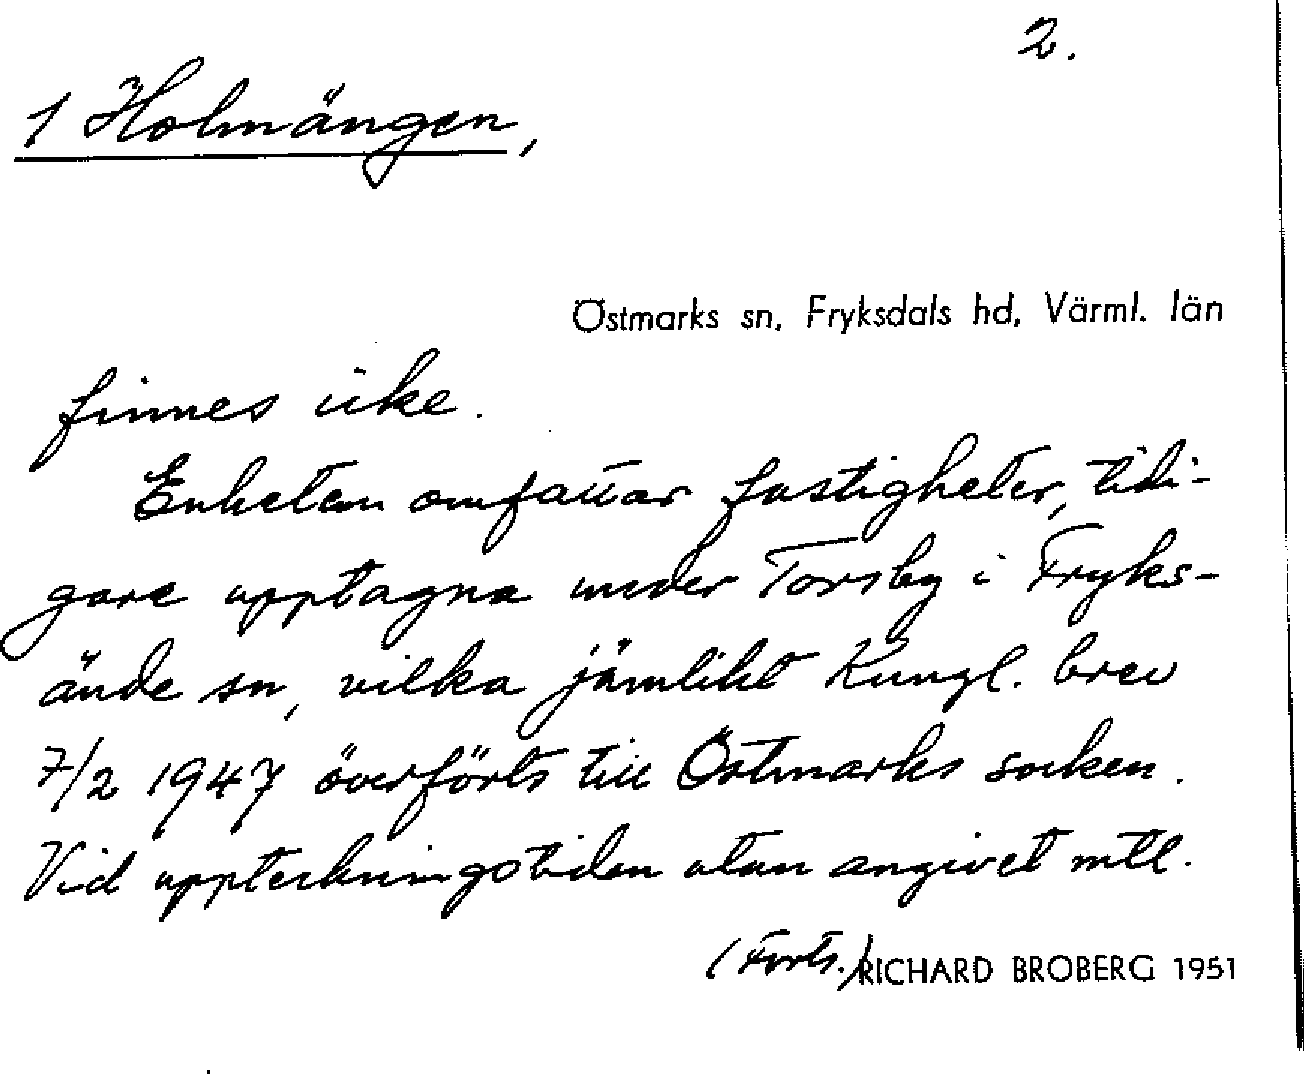 2.
1 Holmängen,
Östmarks sn, Fryksdals hd, Värml. län
finnes icke.
Enheten omfattar fastigheter, tidi-
gare upptagna under Torsby i Fryks-
ände sn, vilka jämlikt Kungl. brev
7/2 1947 överförts till Östmarks socken.
Vid uppteckningstiden utan angivet mtl.
(Forts.) RICHARD BROBERG 1951